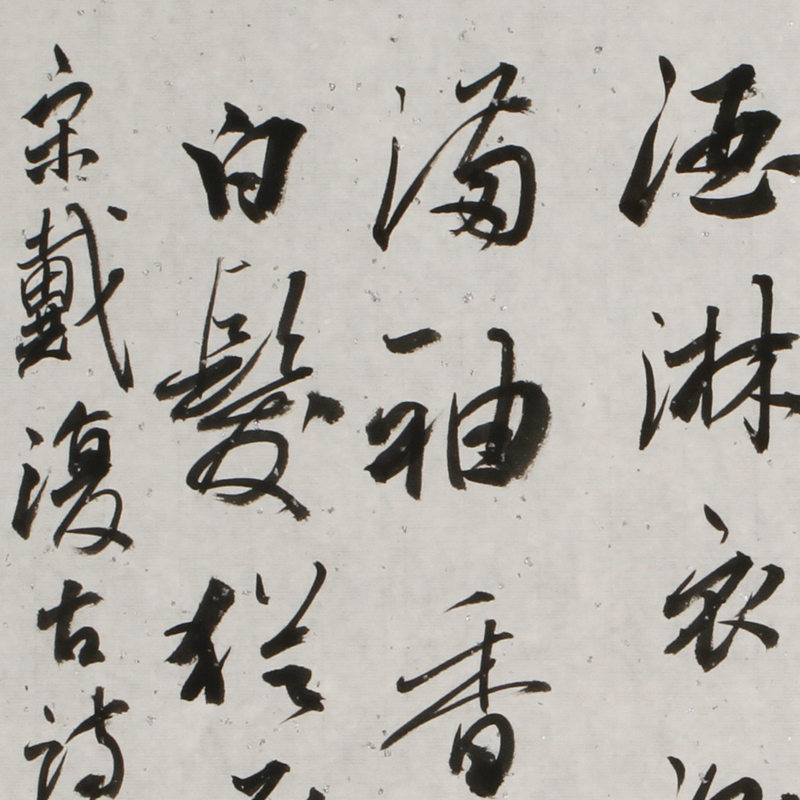 酒淋衣
滿袖香
白髮猶
宋戴復古詩